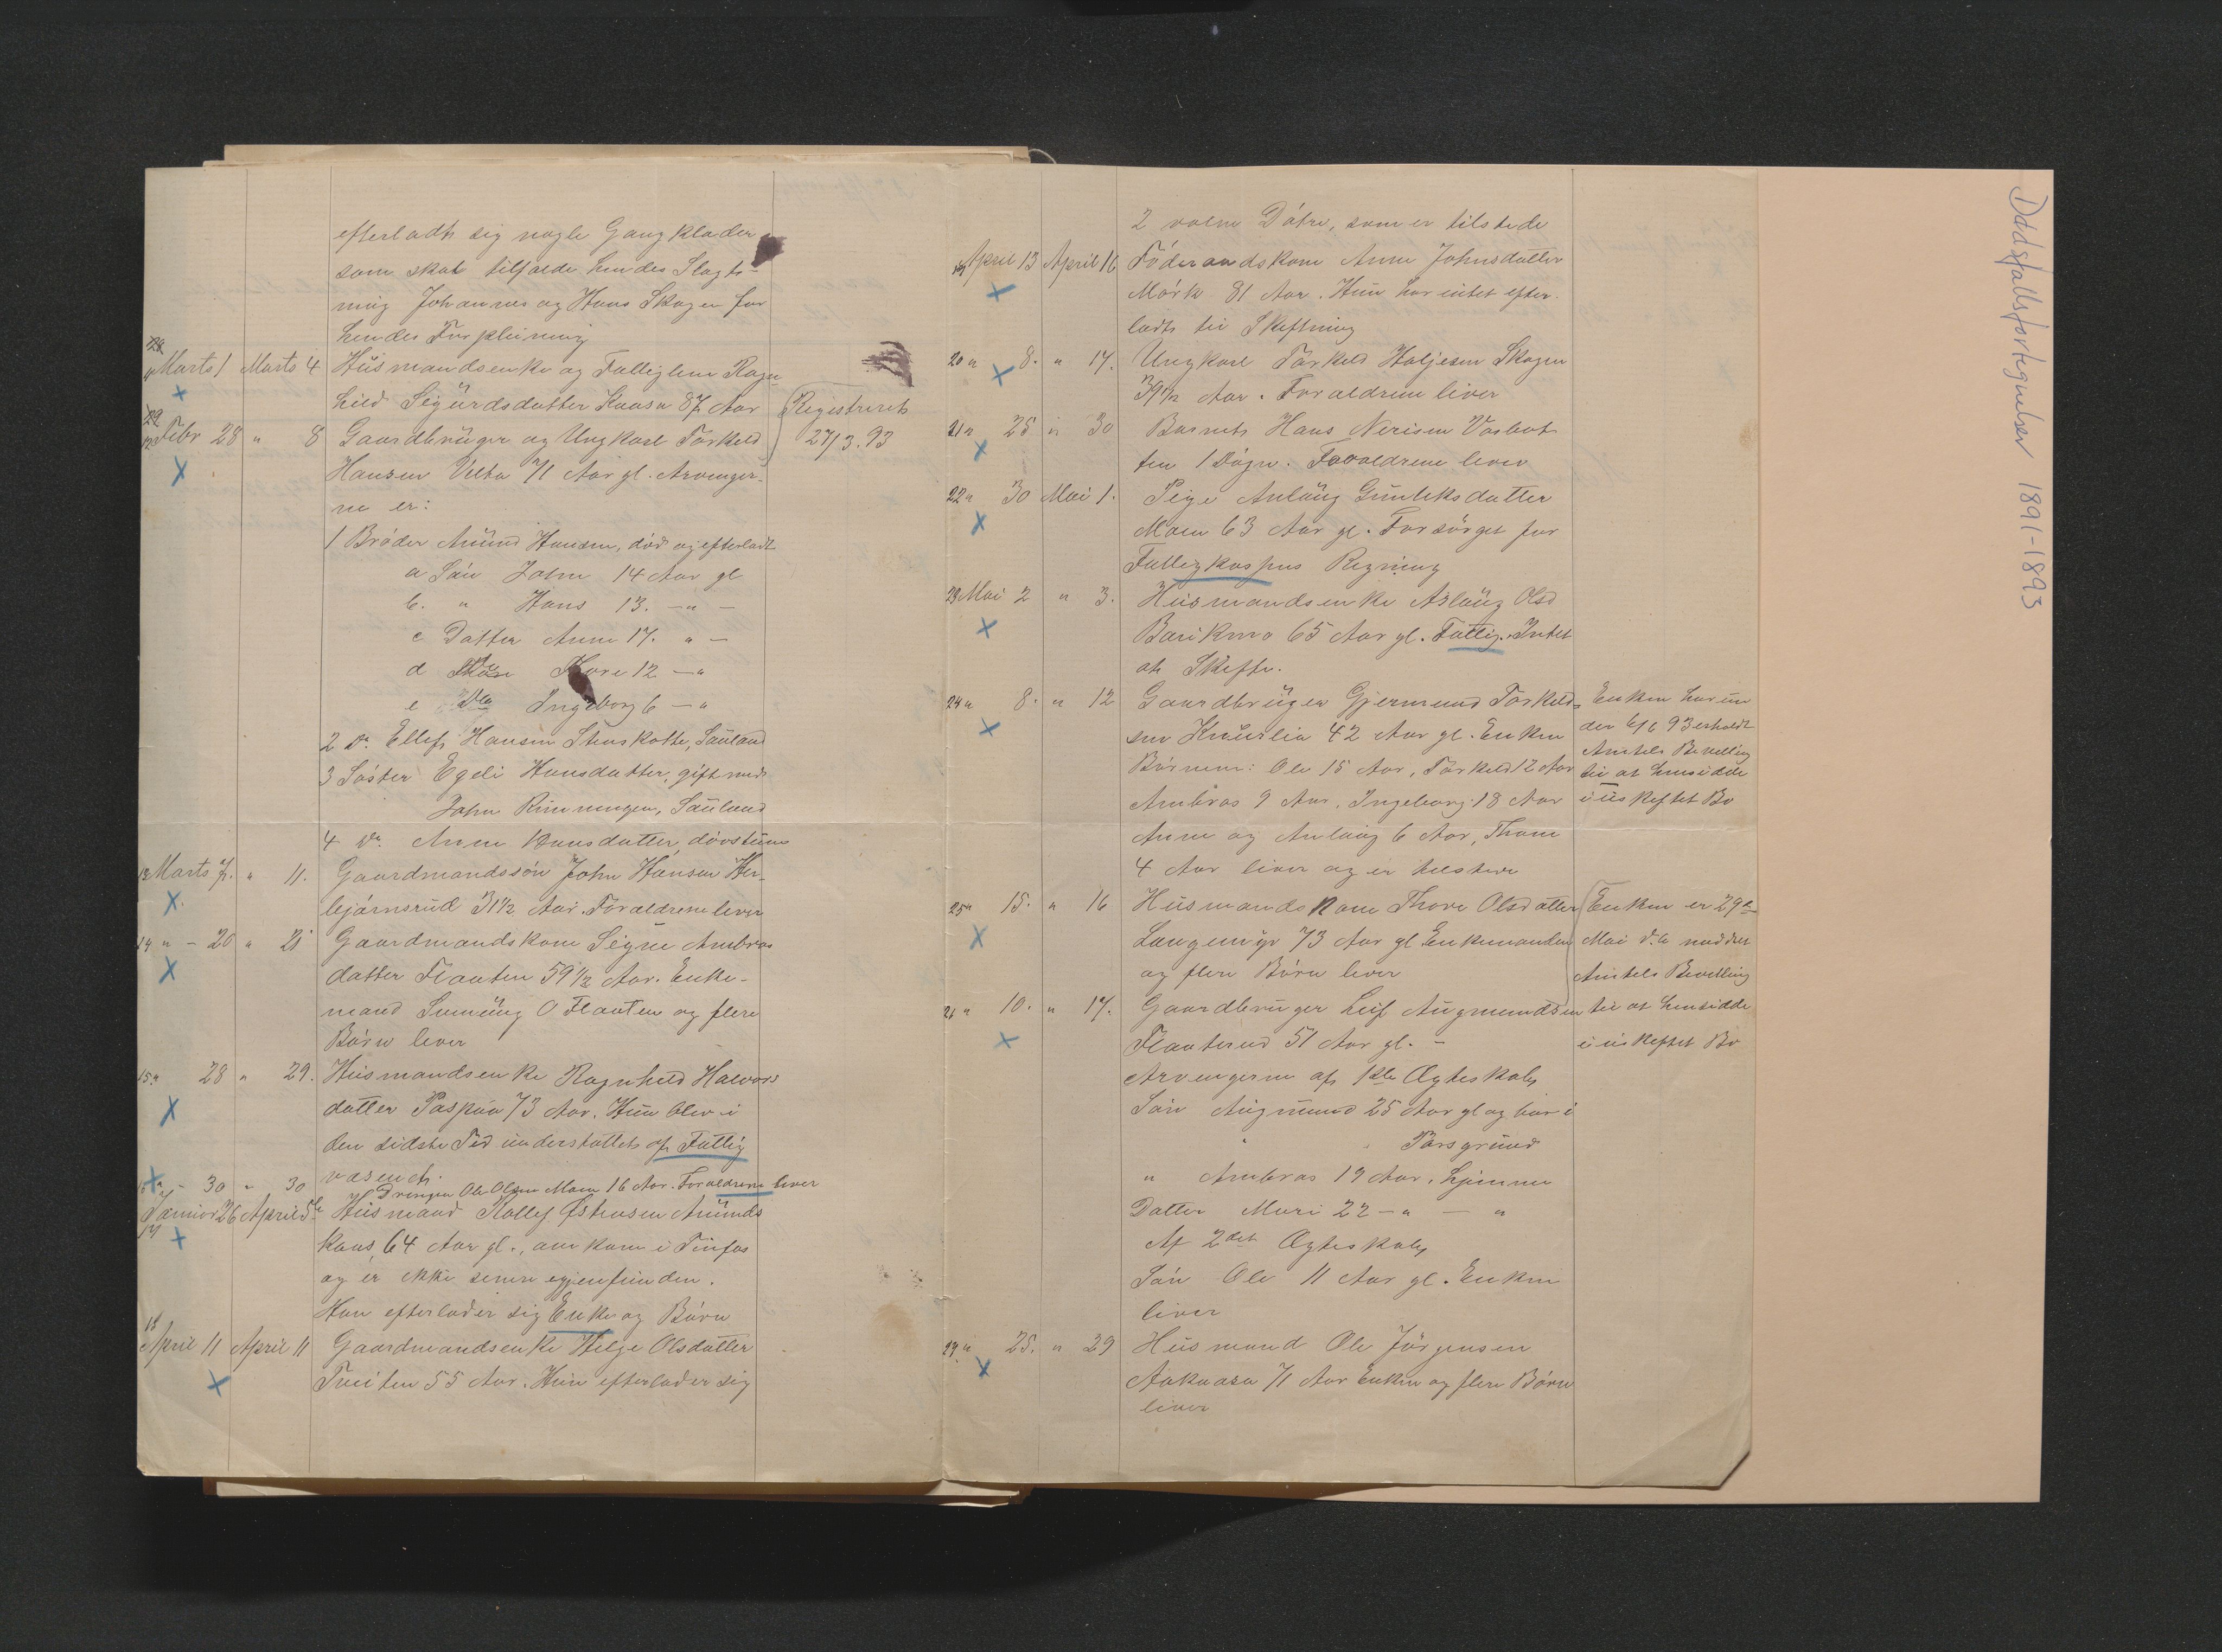 efterladt sig nogle Gangklæder
som skal tilfalde hendes Slagt-
ning Johannes og Hans Skogen for
hendes Forpleining
11 Marts 1 Marts 4 Husmandsenke og Fattiglem Ragn-
hild Sigurdsdatter Kaasa 87 Aar
12 Febr 28 " 8 Gaardbruger og Ungkarl Torkild
Hansen Velta 71 Aar gl. Arvinger-
ne er:
Registreret
27/3.93
1 Broder Amund Hansen, död og efterladt
a Sön John 14 Aar gl
b. " Hans 13. - " -
c Datter Anne 17. " -
d Do Tore 12 - "
e Do Ingeborg 6 - "
2 Do. Ellef Hansen Stenskotte, Sauland
3 Söster Egeli Hansdatter, gift med
John Runningen, Sauland
4 Do. Anne Hansdatter, dövstum
13 Marts 7. " 11. Gaardmandssön John Hansen Her-
björnsrud 31 1/2 Aar. Forældrene lever
14 " - 20 " 21 Gaardmandskone Signe Ambros
datter Flaaten 59 1/2 Aar. Enke-
mand Sunung O Flaaten og flere
Börn lever
15 " 28 " 29. Husmandsenke Ragnhild Halvors
datter Paspaa 73 Aar. Hun blev i
den sidste Tid understöttet af Fattig
væsenet.
16 " - 30 " 30 Drengen Ole Olsen Moen 16 Aar. Forældrene lever
17 Januar 26 April 5te Husmand Rollef Östensen Amunds
kaas, 64 Aar gl., omkom i Tinfos
og er ikke senere gjenfunden.
Han efterlader sig Enke og Börn
18 April 11 April 11 Gaardmandsenke Helge Olsdatter
Tveiten 55 Aar. Hun efterlader sig
2 voxne Dötre, som er tilstede
19 April 13 April 16 Föderaadskone Anne Johnsdatter
Mörk 81 Aar. Hun har intet efter-
ladt til Skiftning
20 " 8. " 17. Ungkarl Torkild Haljesen Skogen
39 1/2 Aar. Forældrene lever
21 " 25 " 30 Barnet Hans Nerisen Vasbot
ten 1 Dögn. Forældrene lever
22 " 30 Mai 1. Pige Anlaug Gunleksdatter
Moen 63 Aar gl. Forsörget for
Fattigkassens Regning
23 Mai 2 " 3. Husmandsenke Aslaug Olsd
Barikmo 65 Aar gl. Fattig. Intet
at Skifte.
24 " 8. " 12 Gaardbruger Gjermund Torkild-
sen Knurlia 42 Aar gl. Enken
Börnene: Ole 15 Aar, Torkild 12 Aar
Ambros 9 Aar, Ingeborg 18 Aar
Anne og Anlaug 6 Aar, Thone
4 Aar lever og er tilstede
Enken har un
der 6/6 93 erholdt
Amtets Bevilling
til at hensidde
i uskiftet Bo
25 " 15. " 16 Husmandskone Thore Olsdatter
Langemyr 73 Aar gl Enkemanden
og flere Börn lever
26 " 10. " 17. Gaardbruger Leif Augmundsen
Flaaterud 51 Aar gl. -
Enken er 29de
Mai d.A. meddelt
Amtets Bevilling
til at hensidde
i uskiftet Bo
Arvingerne af 1ste Ægteskab
Sön Augmund 25 Aar gl og bor i
Porsgrund
" Ambros 19 Aar, hjemme
Datter Mari 22 - " - "
Af 2det Ægteskab
Sön Ole 11 Aar gl. Enken
lever
27 " 25. " 29 Husmand Ole Jörgensen
Aakaasa 71 Aar Enken og flere Börn
lever
Dødsfallsfortegnelser 1891-1893